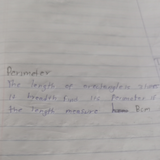 Perimeter
The length of rectangles
is breadth find its Perimeter if
the length measure 8cm